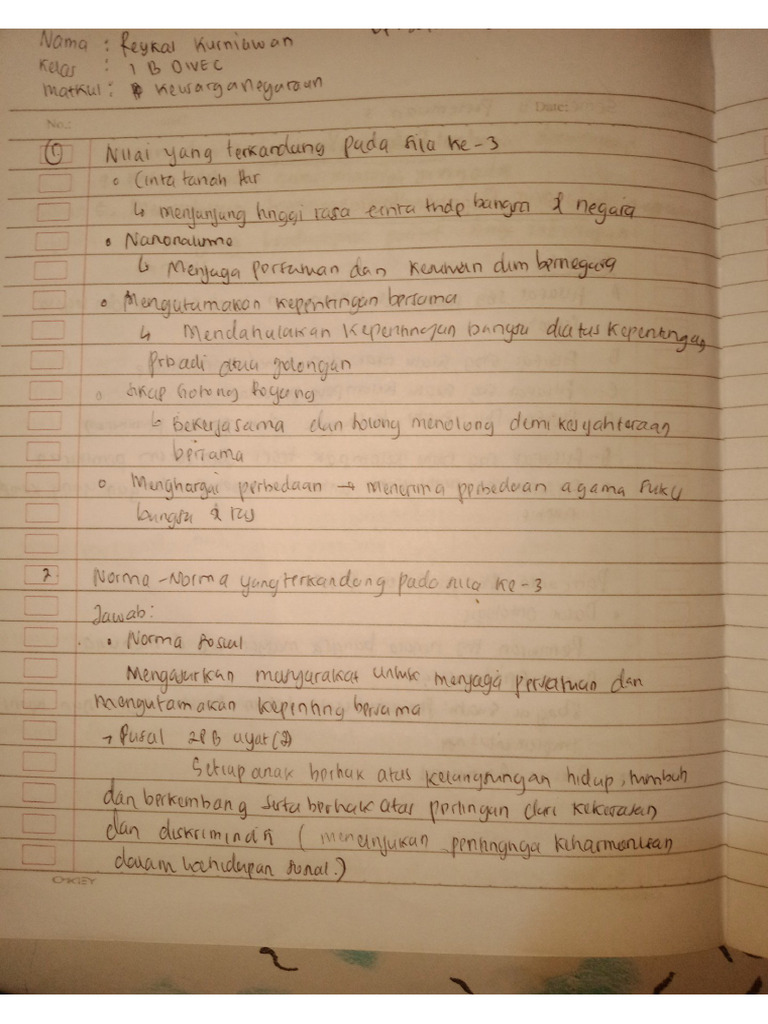 Nama : Reykal Kurniawan
Kelas : 1 B DIVEC
Matkul : Kewarganegaraan
No.: Date:
① Nilai yang terkandung pada sila ke-3
◦ Cinta tanah Air
↳ menjunjung tinggi rasa cinta thdp bangsa & negara
• Nasionalisme
↳ Menjaga persatuan dan kesatuan dlm bernegara
◦ Mengutamakan kepentingan bersama
↳ Mendahulukan kepentingan bangsa diatas kepentingan
pribadi atau golongan
◦ Sikap Gotong Royong
↳ Bekerjasama dan tolong menolong demi kesejahteraan
bersama
◦ Menghargai perbedaan → menerima perbedaan agama suku
bangsa & ras
2 Norma-Norma yang terkandung pada sila ke-3
Jawab:
• Norma Sosial
Mengajurkan masyarakat untuk menjaga persatuan dan
mengutamakan kepenting bersama
→ Pasal 28 B ayat (2)
Setiap anak berhak atas kelangsungan hidup, tumbuh
dan berkembang serta berhak atas perlingan dari kekerasan
dan diskriminasi ( menunjukan pentingnya keharmonisan
dalam kehidupan sosial.)